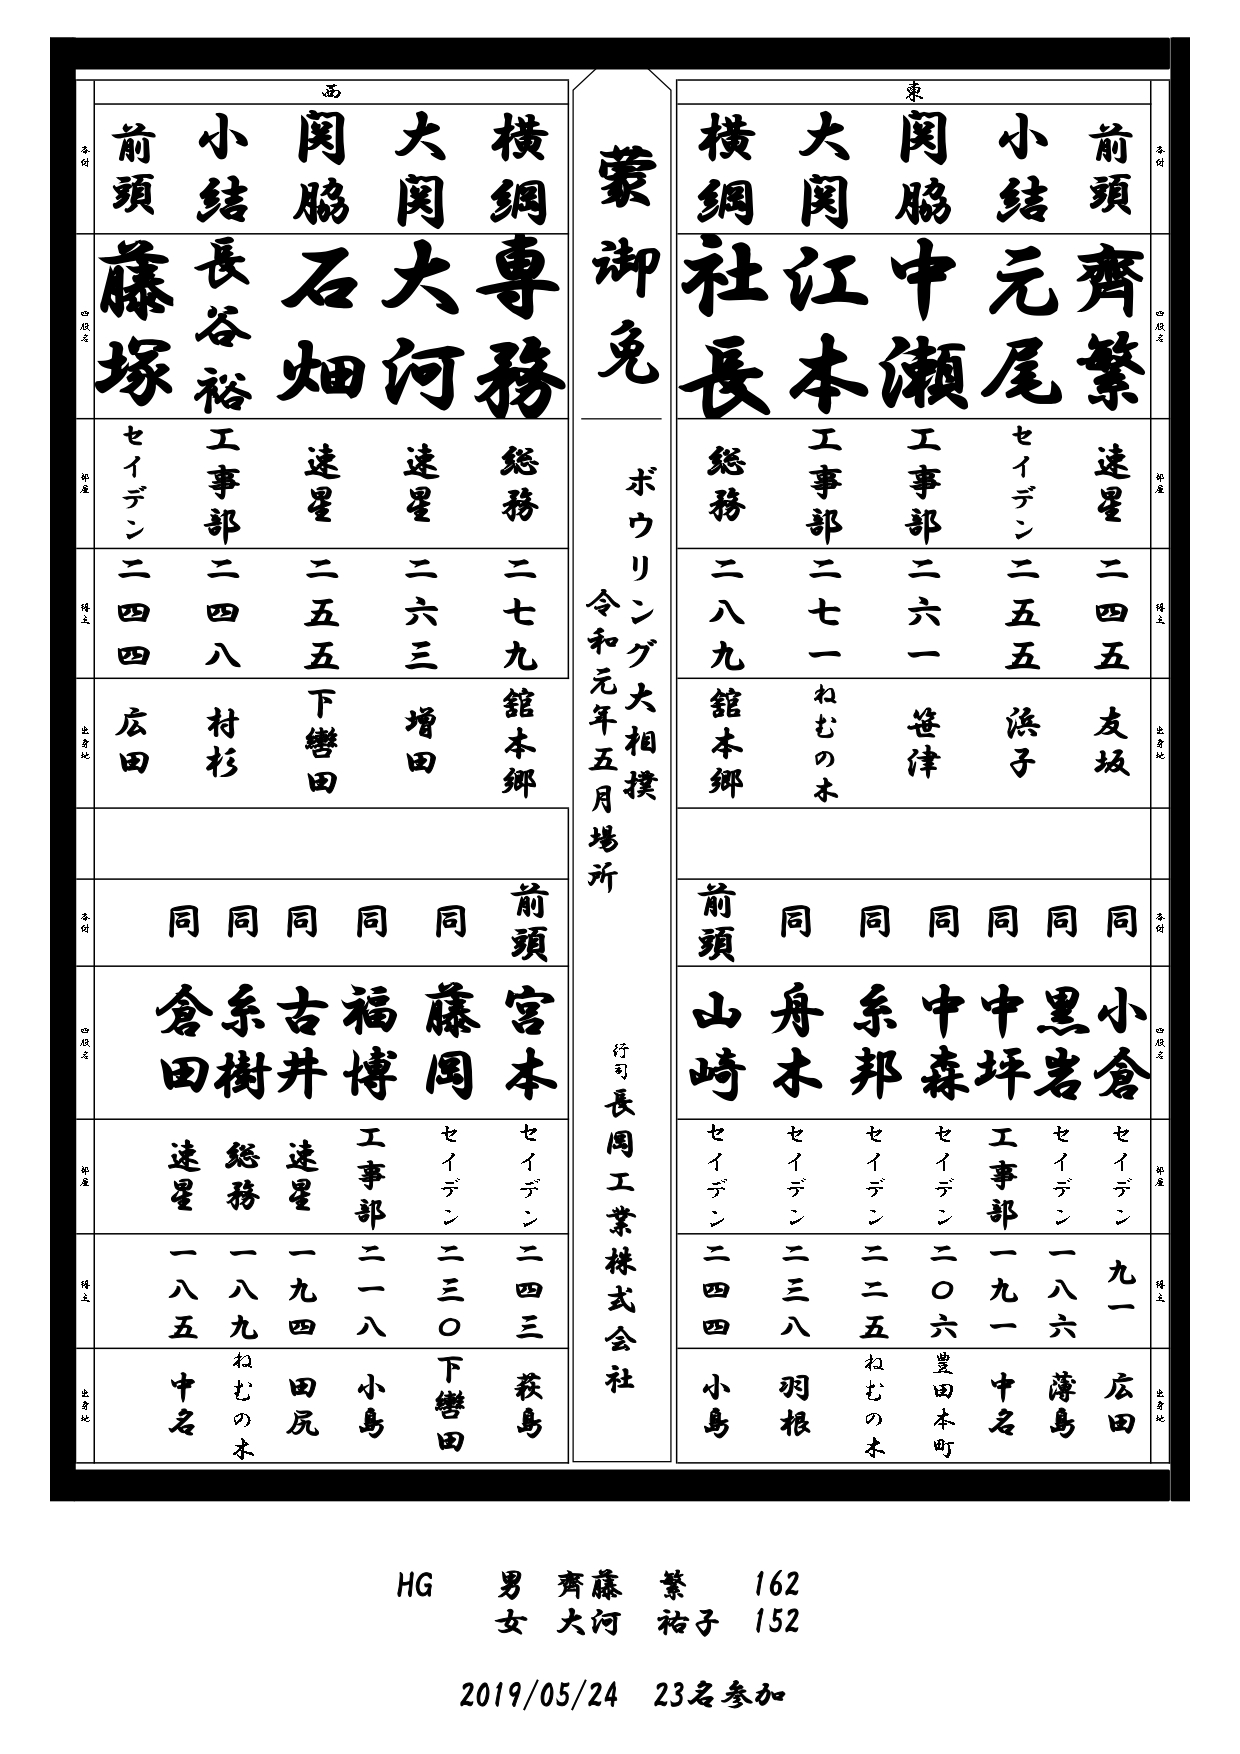 東
番付 四股名 部屋 得点 出身地
前頭 齊繁 速星 二四五 友坂
小結 元尾 セイデン 二五五 浜子
関脇 中瀬 工事部 二六一 笹津
大関 江本 工事部 二七一 ねむの木
横綱 社長 総務 二八九 舘本郷
番付 四股名 部屋 得点 出身地
同 小倉 セイデン 九一 広田
同 黒岩 セイデン 一八六 薄島
同 中坪 工事部 一九一 中名
同 中森 セイデン 二〇六 豊田本町
同 糸邦 セイデン 二二五 ねむの木
同 舟木 セイデン 二三八 羽根
前頭 山崎 セイデン 二四四 小島
蒙御免
ボウリング大相撲
令和元年五月場所
行司 長岡工業株式会社
西
横綱 専務 総務 二七九 舘本郷
大関 大河 速星 二六三 増田
関脇 石畑 速星 二五五 下轡田
小結 長谷裕 工事部 二四八 村杉
前頭 藤塚 セイデン 二四四 広田
番付 四股名 部屋 得点 出身地
前頭 宮本 セイデン 二四三 萩島
同 藤岡 セイデン 二三〇 下轡田
同 福博 工事部 二一八 小島
同 古井 速星 一九四 田尻
同 糸樹 総務 一八九 ねむの木
同 倉田 速星 一八五 中名
番付 四股名 部屋 得点 出身地
HG 男 齊藤 繁 162
女 大河 祐子 152
2019/05/24 23名参加